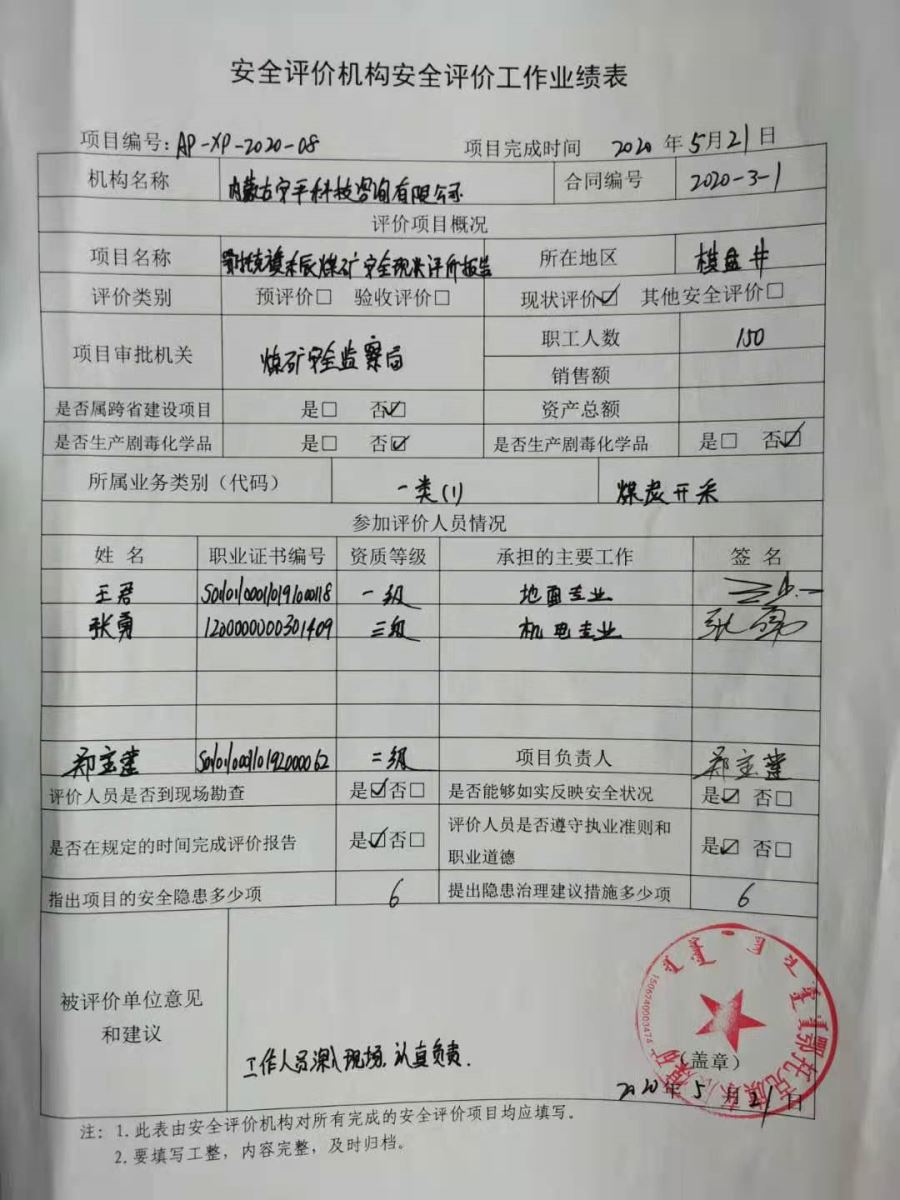 安全评价机构安全评价工作业绩表
项目编号: AP-XP-2020-08 项目完成时间 2020年5月21日
机构名称 内蒙古宇平科技咨询有限公司 合同编号 2020-3-1
评价项目概况
项目名称 鄂托克旗东辰煤矿安全现状评价报告 所在地区 棋盘井
评价类别 预评价□ 验收评价□ 现状评价☑ 其他安全评价□
项目审批机关 煤矿安全监察局 职工人数 150
销售额
是否属跨省建设项目 是□ 否☑ 资产总额
是否生产剧毒化学品 是□ 否☑ 是否生产剧毒化学品 是□ 否☑
所属业务类别（代码） 一类(1) 煤炭开采
参加评价人员情况
姓 名 职业证书编号 资质等级 承担的主要工作 签 名
王君 S011000110191000118 一级 地面专业
张勇 1200000000301409 三级 机电专业 张勇
郑宝 S011000110192000062 二级 项目负责人 郑宝
评价人员是否到现场勘查 是☑否□ 是否能够如实反映安全状况 是☑ 否□
是否在规定的时间完成评价报告 是☑否□ 评价人员是否遵守执业准则和
职业道德 是☑ 否□
指出项目的安全隐患多少项 6 提出隐患治理建议措施多少项 6
被评价单位意见
和建议
工作人员深入现场,认真负责.
1506240003474
鄂托克旗
煤矿
（盖章）
2020年5月21日
注：1.此表由安全评价机构对所有完成的安全评价项目均应填写。
2.要填写工整，内容完整，及时归档。